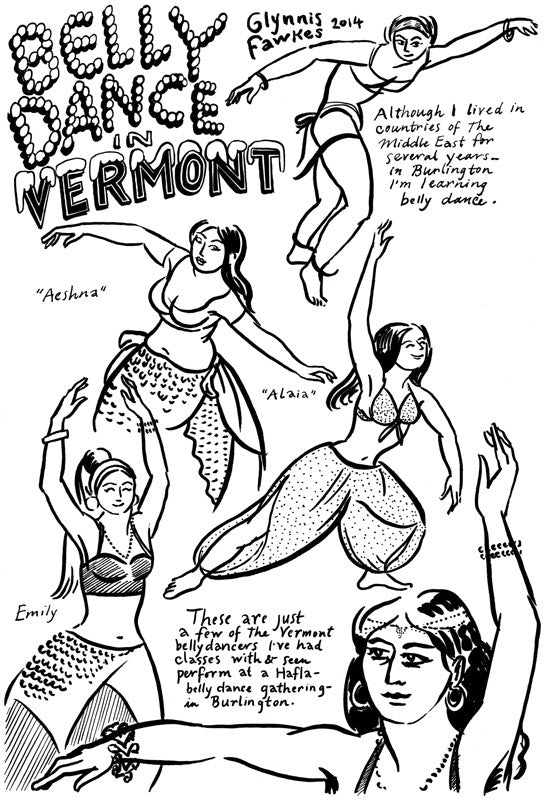 BELLY
DANCE
IN
VERMONT
Glynnis 2014
Fawkes
Although I lived in
countries of The
Middle East for
several years–
in Burlington
I'm learning
belly dance.
"Aeshna"
"Alaia"
Emily
These are just
a few of the Vermont
bellydancers I've had
classes with & seen
perform at a Hafla–
belly dance gathering–
in Burlington.